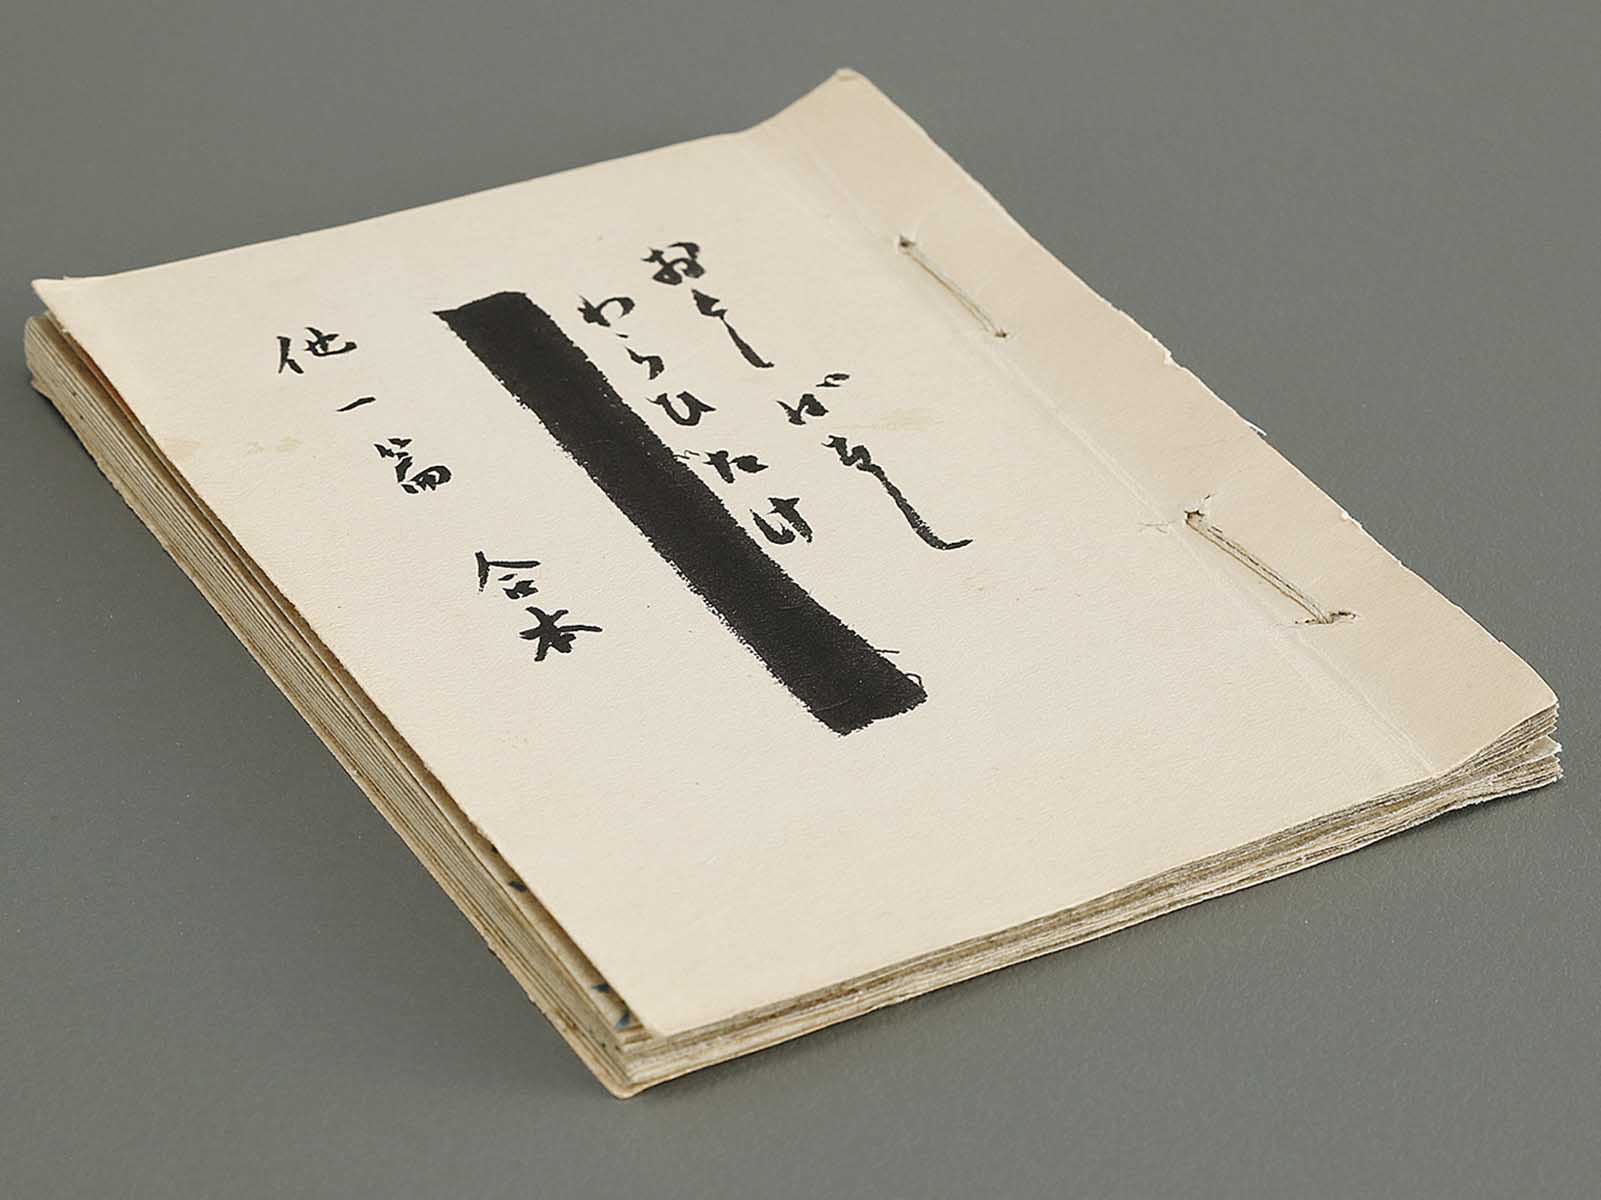 おとしばなし
わらひだけ
他一篇 合本